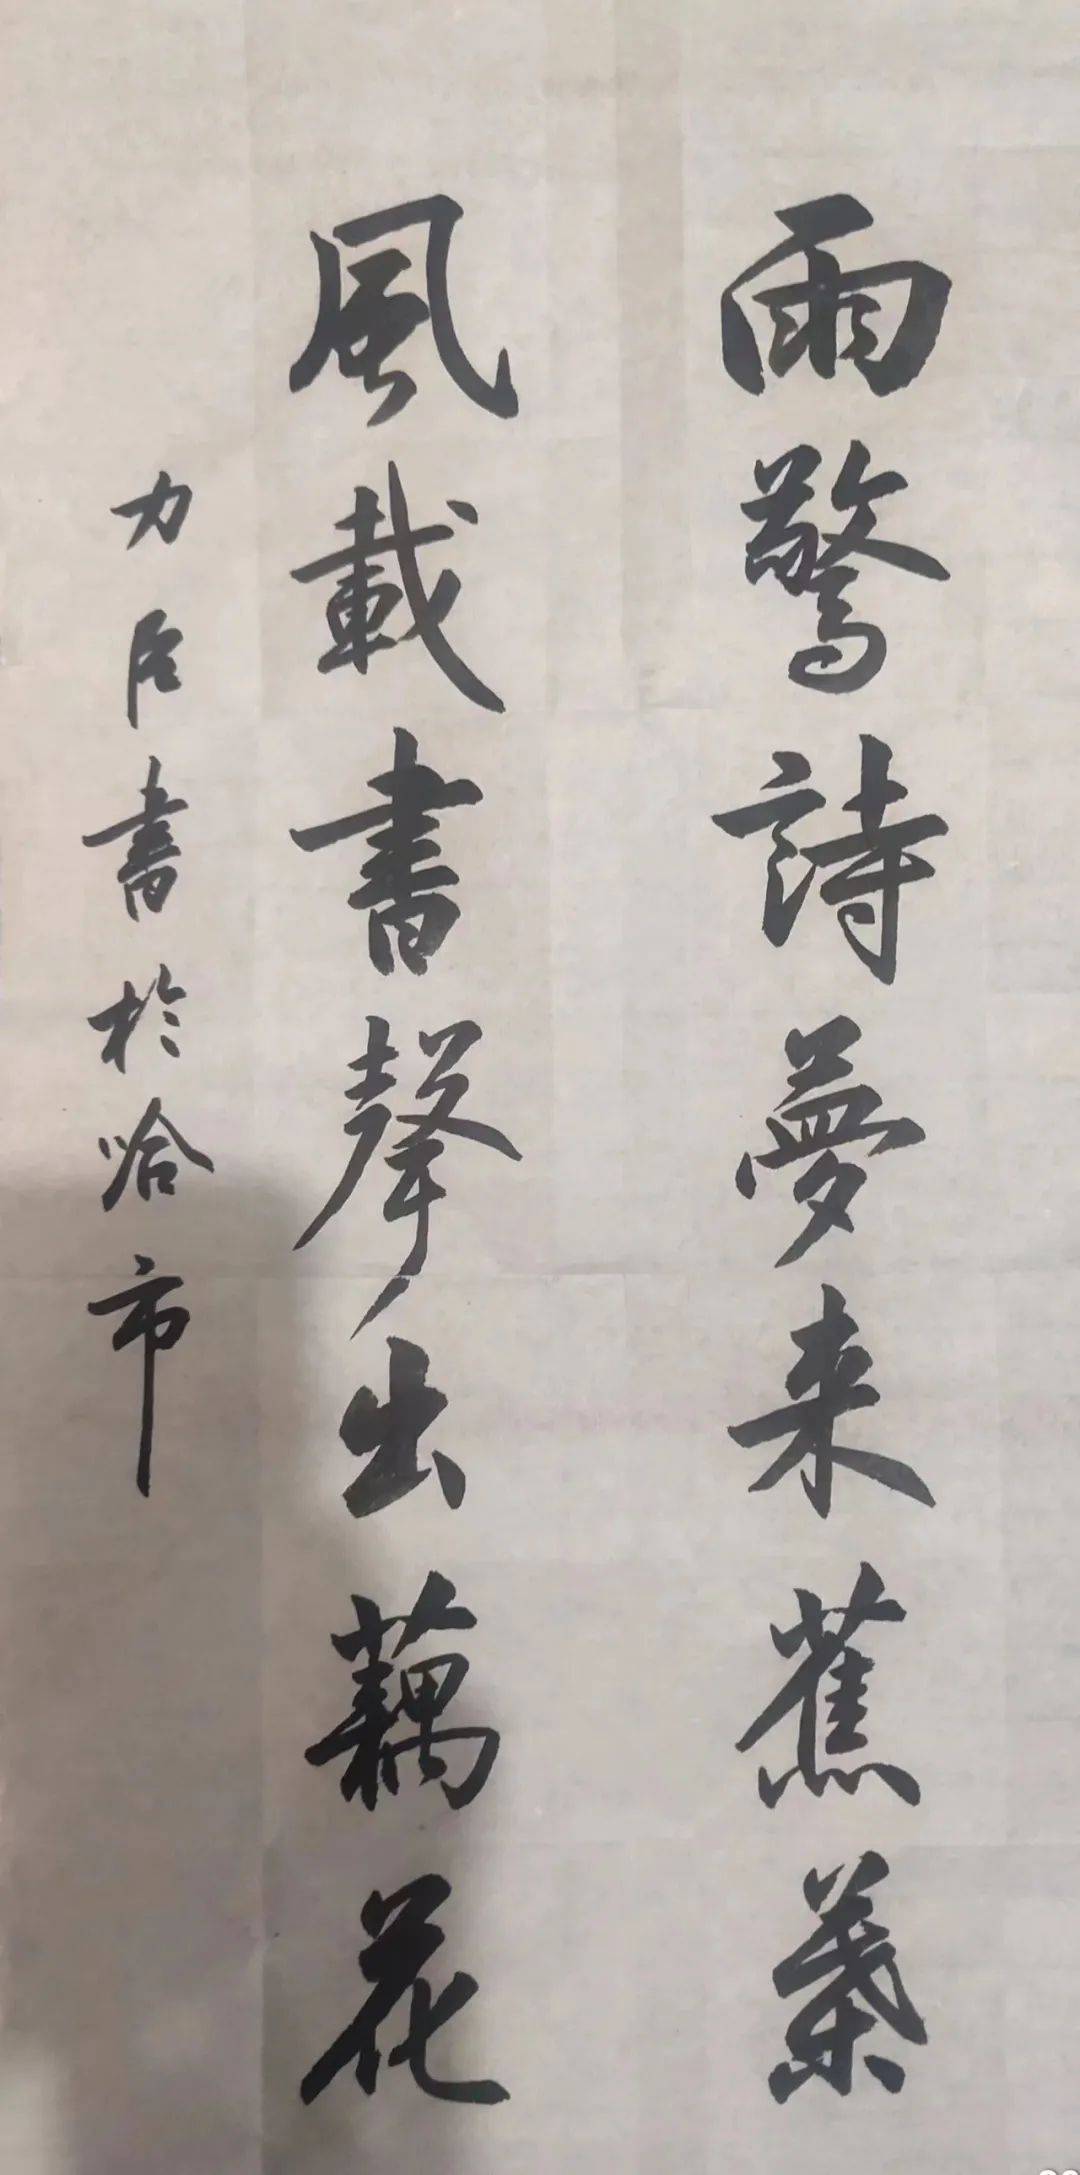 雨驚詩夢来蕉葉
風載書聲出藕花
力臣書於哈市